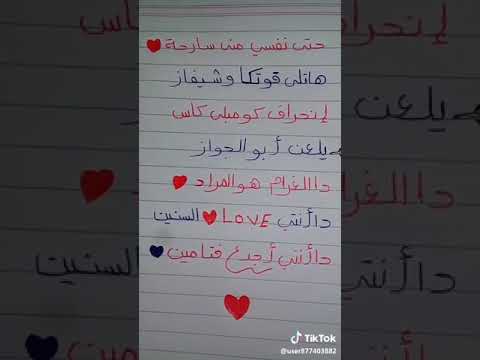 حتى نفسي منى سارحة
هاتلى ڤوتكا وشيفاز
إنحراف كومبلى كاس
يلعن أبو الجواز
دا الغرام هو المراد
دا أنتي LOVE السنين
دا أنتي أجدع فتامين
TikTok
@user877403882